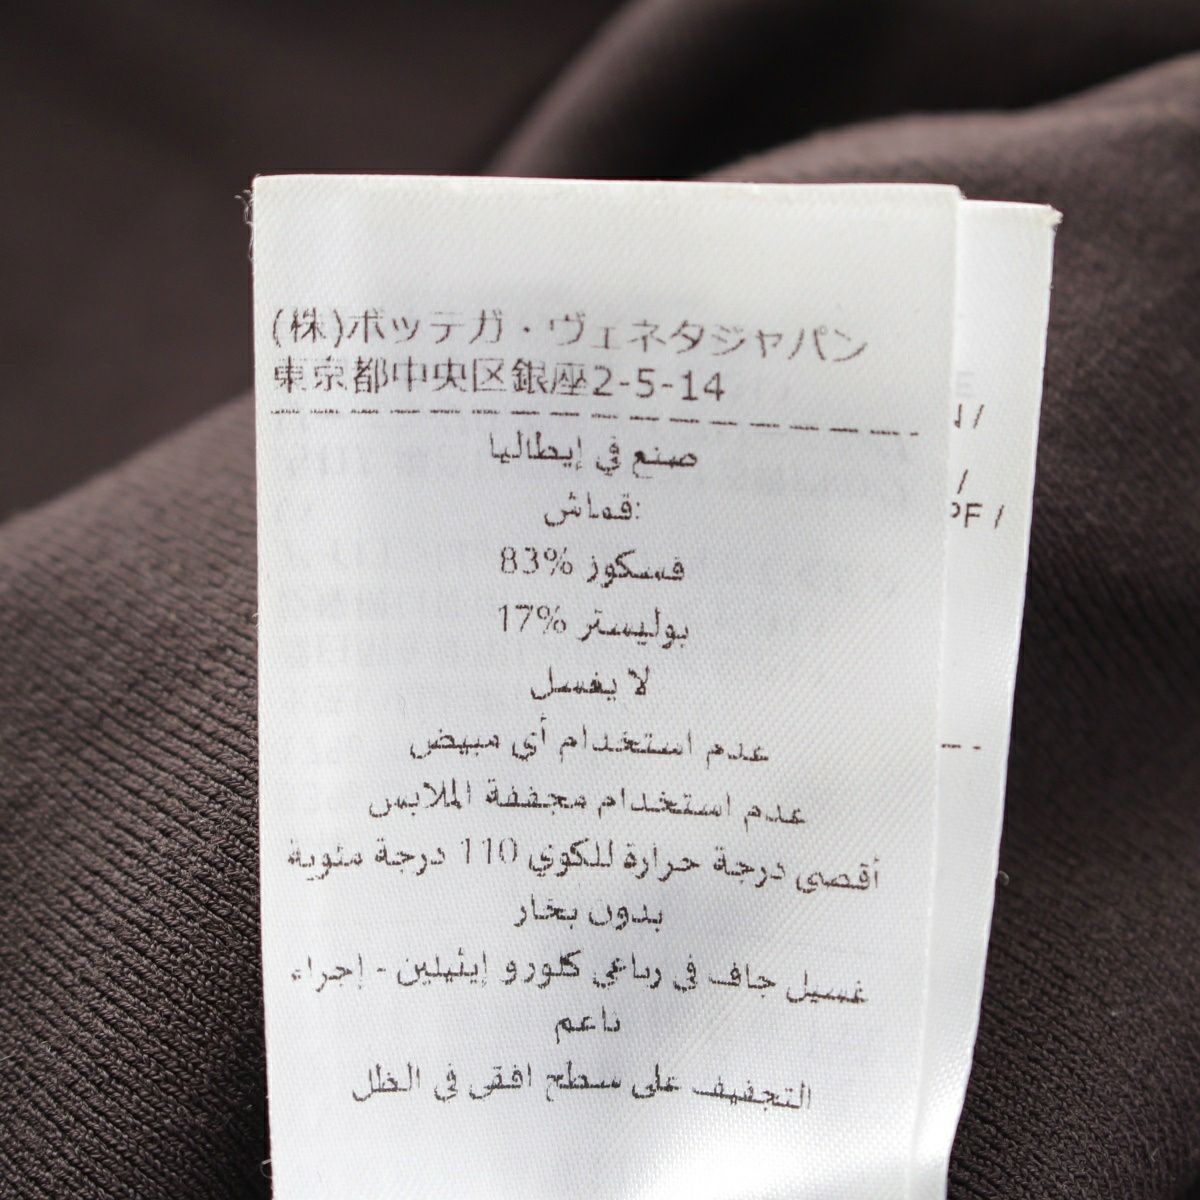 (株)ボッテガ・ヴェネタジャパン
東京都中央区銀座2-5-14
صنع في إيطاليا
قماش:
فسكوز 83%
بوليستر 17%
لا يغسل
عدم استخدام أي مبيض
عدم استخدام مجففة الملابس
أقصى درجة حرارة للكوي 110 درجة مئوية
بدون بخار
غسيل جاف في رباعي كلورو إيثيلين - إجراء
ناعم
التجفيف على سطح افقي في الظل
PF /